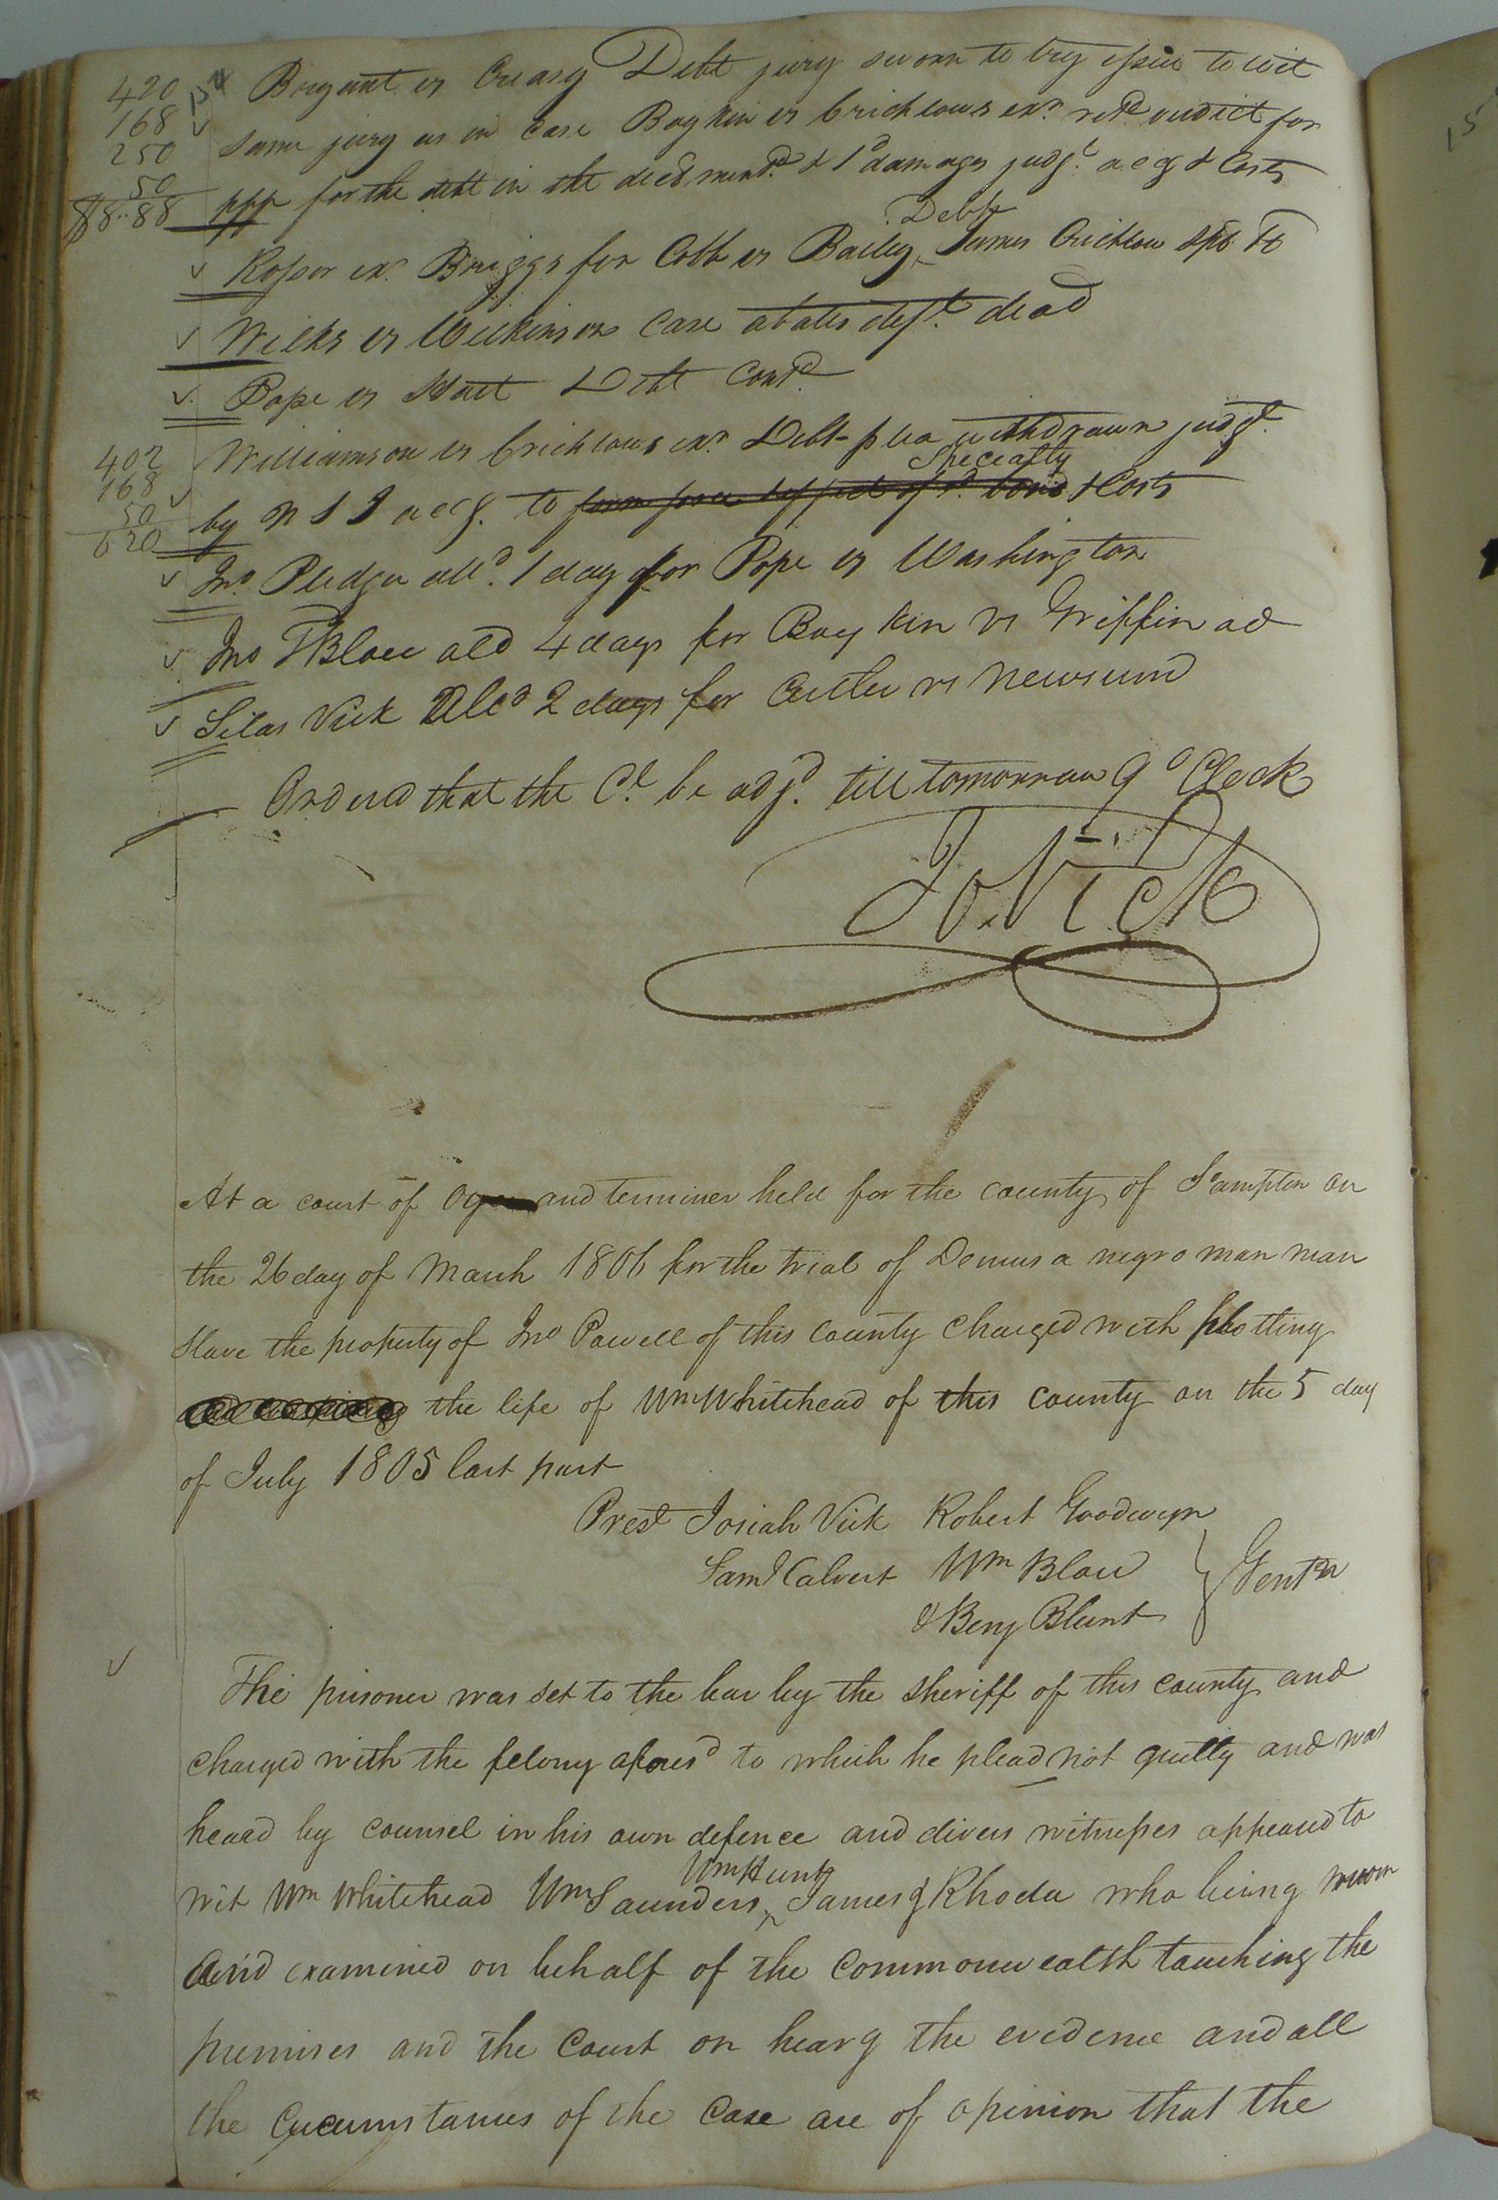 420
168
250
50
88-88
154 Bryant vs Creasy Debt jury sworn to try issue to wit
same jury as in case Boykin vs Crichlows exr. retd. verdict for
plff for the debt in the decl mentd. & 1d damages judgt. accg & Costs
Debt
Rosser exr. Briggs for Cobb vs Bailey, James Crichlow
Wilks vs Wilkinson Case abates deft. dead
Pope vs Hart Debt Contd.
402
168
50
620
Williamson vs Crichlows exr. Debt plea withdrawn judgt.
Specialty
by accg. to form force & effect of sd. bond & Costs
Jno. Pledger alld. 1 day for Pope vs Washington
Jno T Blow ald 4 days for Boykin vs Griffin ad
Silas Vick Alld 2 days for Cutler vs Newsum
Ordered that the Ct. be adjd. till tomorrow 9 o Clock
Jo. Vick
At a court of Oyer and terminer held for the county of S'ampton on
the 26 day of March 1806 for the trial of Demus a negro man man
slave the property of Jno Powell of this county charged with plotting
the life of Wm Whitehead of this county on the 5 day
of July 1805 last past
Prest Josiah Vick Robert Goodwyn
Saml Calvert Wm Blow } Gentn
& Benj Blunt
The prisoner was set to the bar by the sheriff of this county and
charged with the felony aforesd to which he plead not guilty and was
heard by counsel in his own defence and divers witnesses appeared to
Wm Hunt
wit Wm Whitehead Wm Saunders, James & Rhoda who being sworn
and examined on behalf of the commonwealth touching the
premises and the Court on hearg the evidence and all
the Circumstances of the Case are of opinion that the